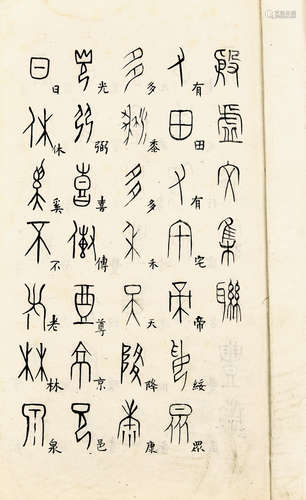 殷虛文集聯
有田有宅帝綏眾
多黍多禾天降康
光弼喜傳尊京邑
日休奚不老林泉